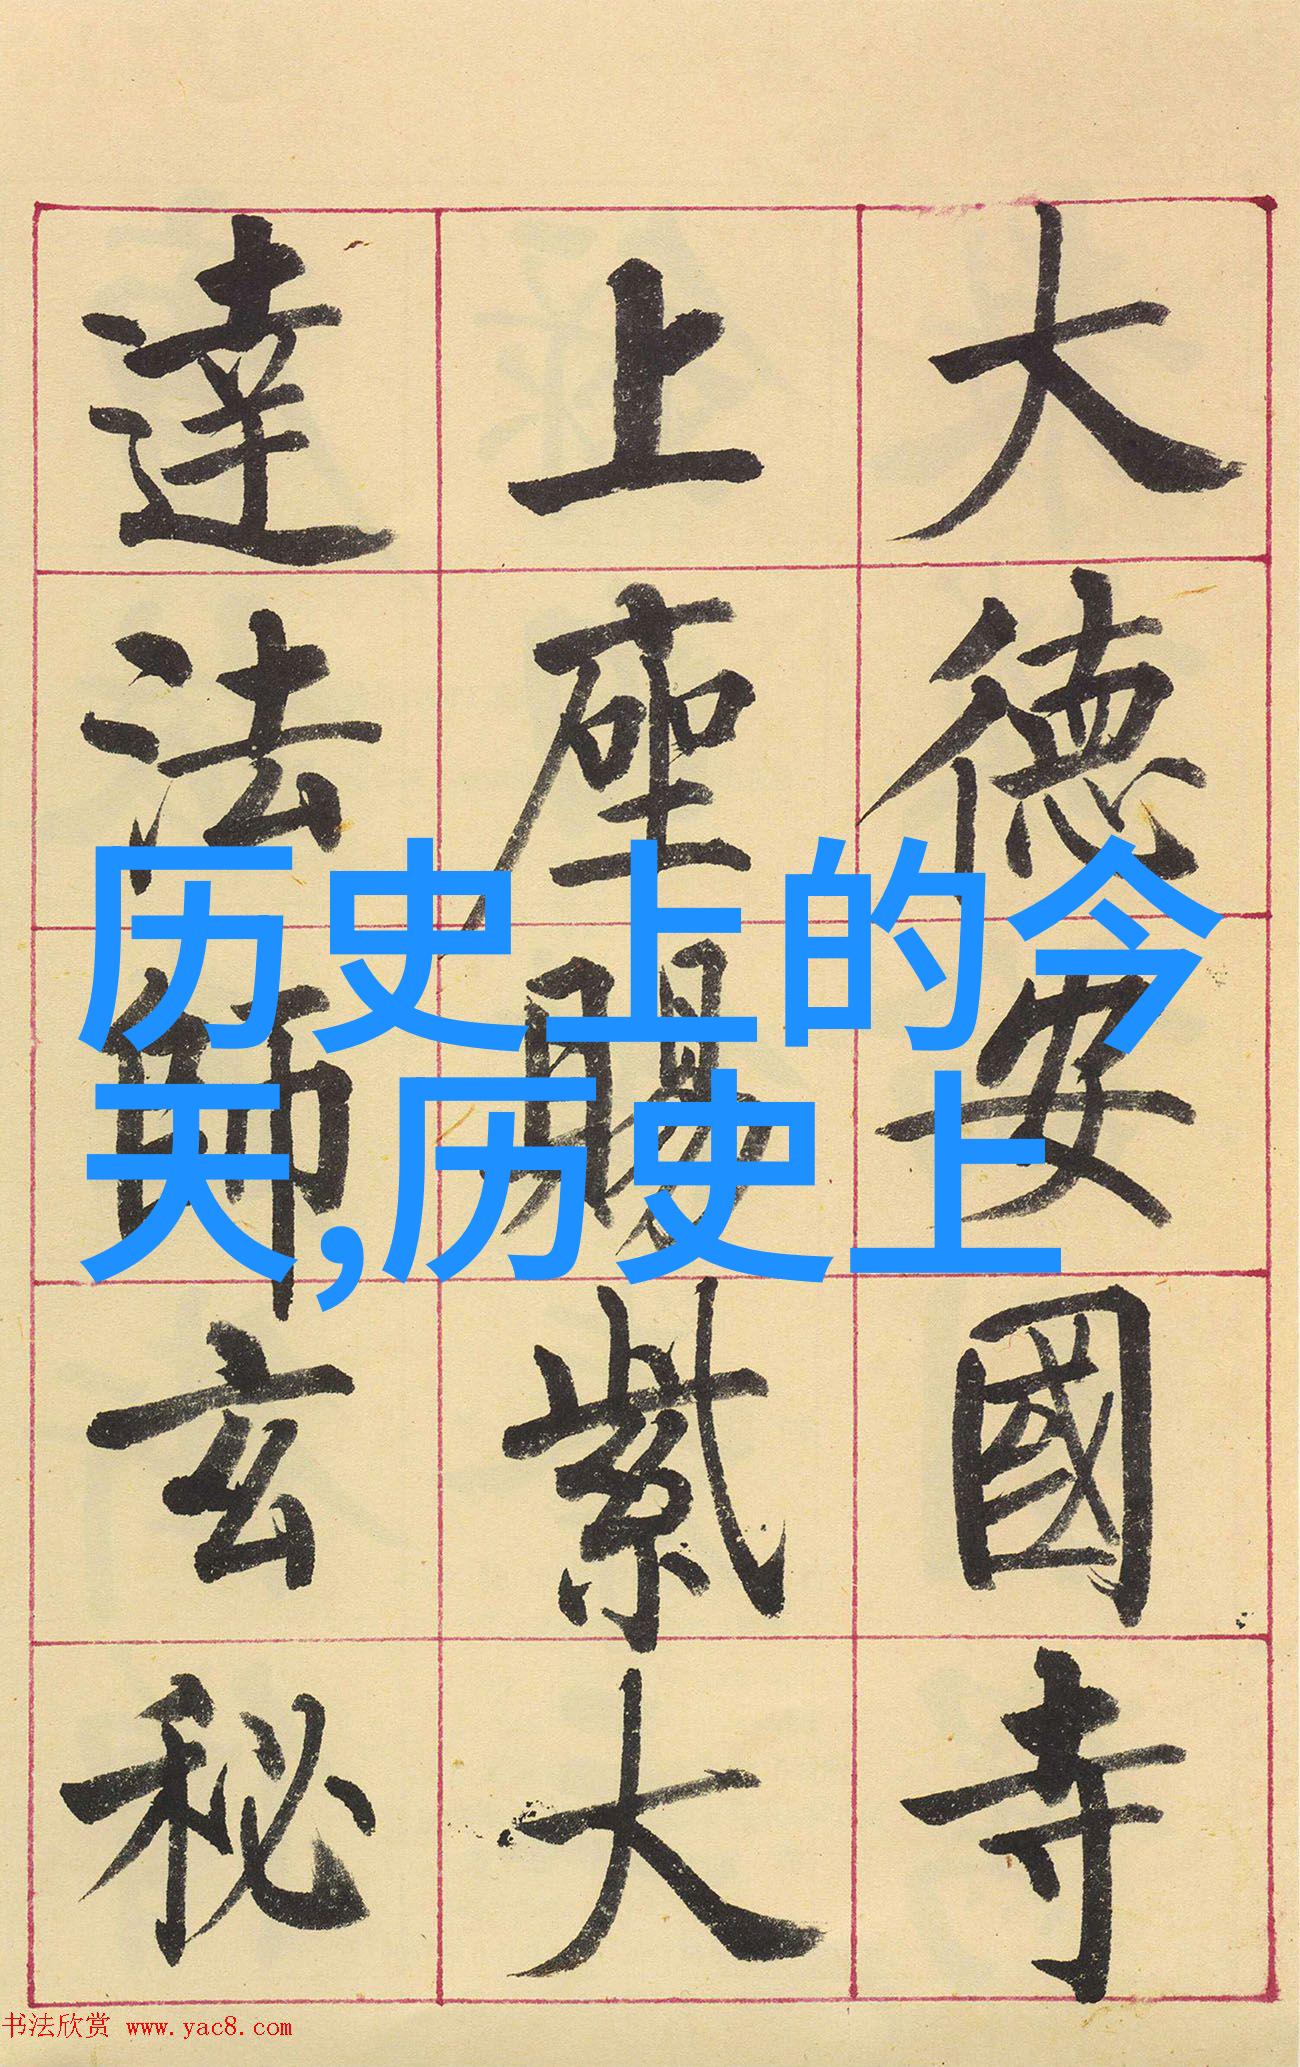 大德安國寺
上座賜紫大
達法師玄秘
历史上的今
天,历史上
书法欣赏 www.yac8.com